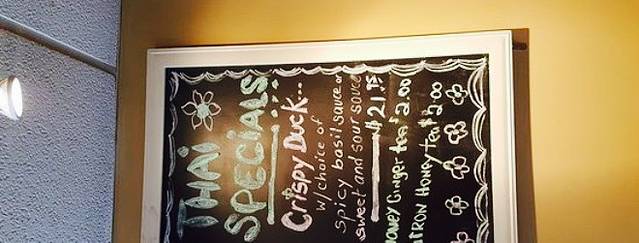 THAI
SPECIALS!
Crispy Duck...
w/choice of
spicy basil sauce or
sweet and sour sauce
$21.75
Honey Ginger tea $2.00
Honey tea $2.00